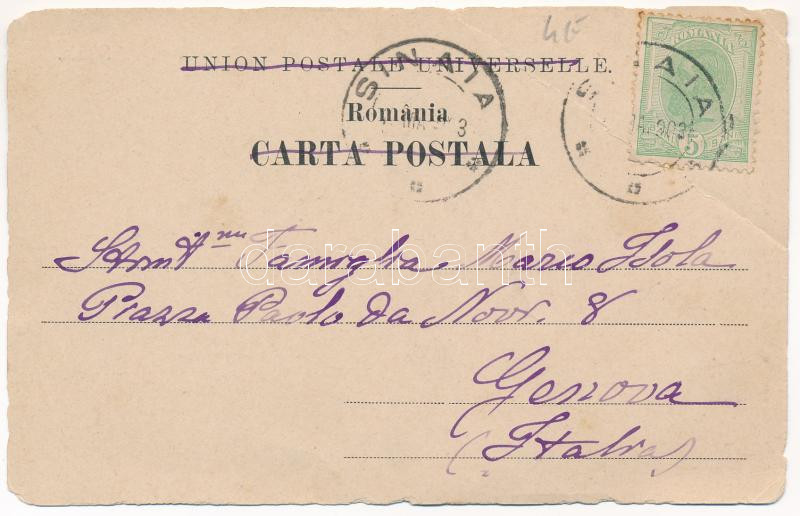 4E
UNION POSTALE UNIVERSELLE.
ROMANIA
5 BANI 5
SINAIA
AIA
România
CARTA POSTALA
darabanth
Famiglia Mario Isola
Piazza Paolo da Novi. 8
Genova
(Italia)